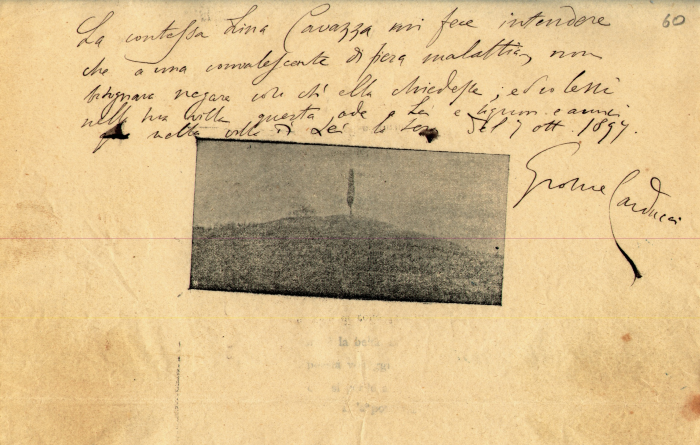 60
La contessa Lina Cavazza mi fece intendere
che a una convalescente di fiera malattia, non
bisognava negare ciò ch' ella chiedesse; ed io lessi
nella sua villa questa ode a Lei e
nella villa di Lei la sera del 7 ott. 1897.
Giosue Carducci